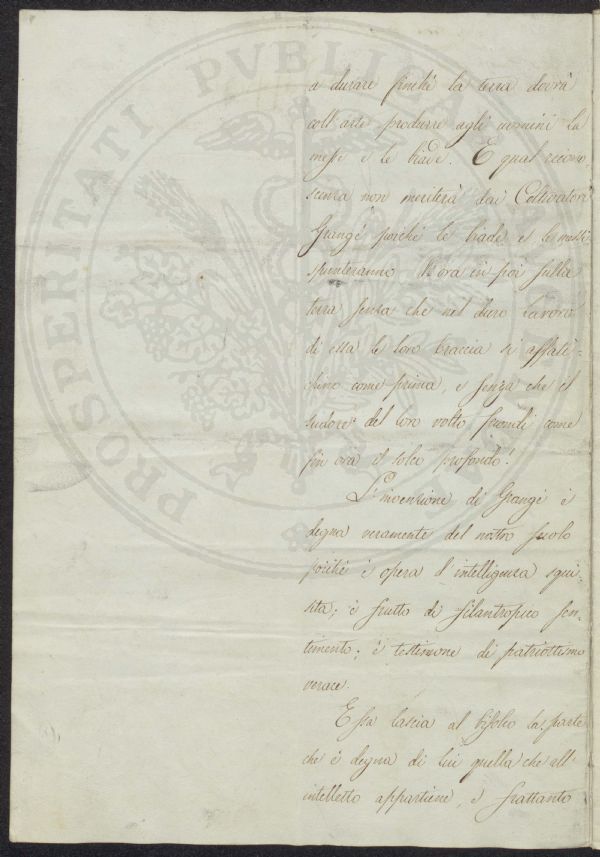 a durare finchè la terra dovrà
coll'arte produrre agli uomini la
messe e le biade. E qual ricono-
scenza non meriterà dai Coltivatori
Grangé poichè le biade e le messi
spunteranno d'ora in poi sulla
terra senza che nel duro lavoro
di essa le loro braccia si affati-
chino come prima, e senza che il
sudore del loro volto grondi come
fin ora il solco profondo!
L'invenzione di Grangé è
degna veramente del nostro secolo
poichè è opera d'intelligenza squi-
sita; è frutto di filantropico sen-
timento; è testimone di patriottismo
verace.
Essa lascia al bifolco la parte
che è degna di lui quella che all'
intelletto appartiene, e frattanto
PROSPERITATI PVBLICAE